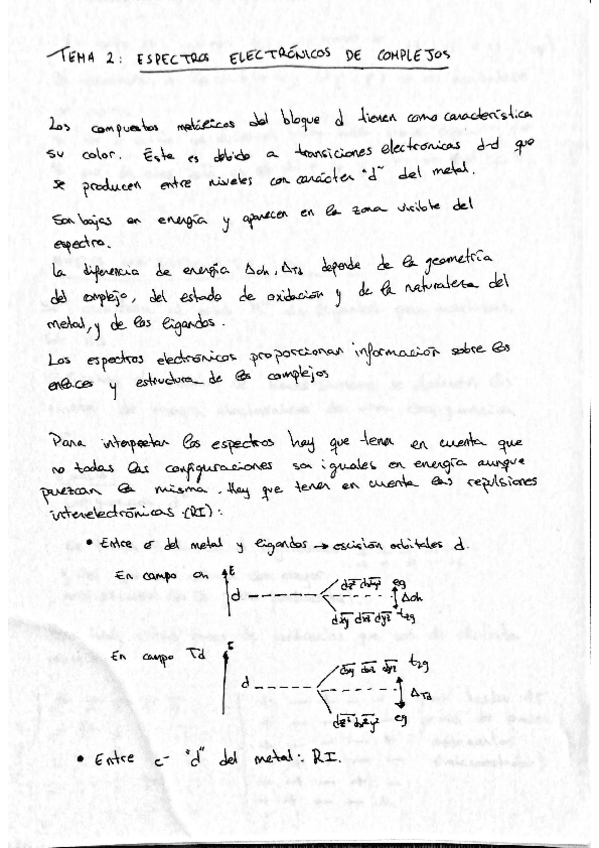 TEMA 2: ESPECTROS ELECTRÓNICOS DE COMPLEJOS
Los compuestos metálicos del bloque d tienen como característica
su color. Éste es debido a transiciones electrónicas d-d que
se producen entre niveles con carácter "d" del metal.
Son bajas en energía y aparecen en la zona visible del
espectro.
La diferencia de energía Δoh, ΔTd depende de la geometría
del complejo, del estado de oxidación y de la naturaleza del
metal, y de los ligandos.
Los espectros electrónicos proporcionan información sobre los
enlaces y estructura de los complejos
Para interpretar los espectros hay que tener en cuenta que
no todas las configuraciones son iguales en energía aunque
puezcan la misma. Hay que tener en cuenta las repulsiones
interelectrónicas (RI):
• Entre e⁻ del metal y ligandos → escisión orbitales d.
En campo oh E
dz² dx²y² eg
d Δoh
dxy dxz dyz t2g
En campo Td E
dxy dxz dyz t2g
d ΔTd
dz² dx²y² eg
• Entre e⁻ "d" del metal: RI.